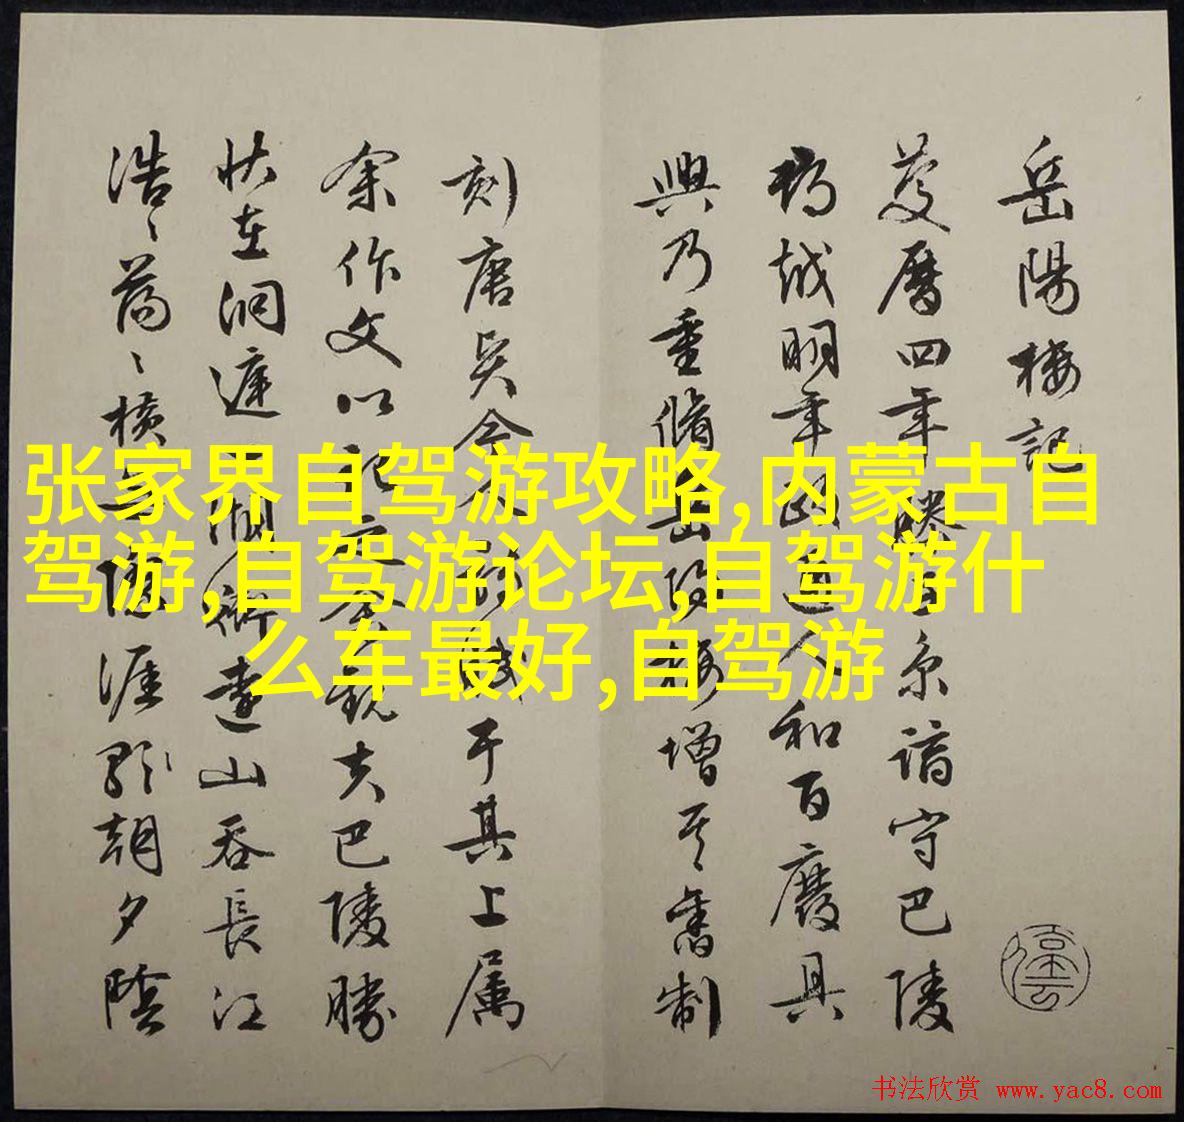 岳陽樓記
慶曆四年
滕子京謫守巴陵
郡越明年政通人和百廢具
興乃重脩岳陽樓增其舊制
刻唐賢今人詩賦于其上属
余作文以記之余觀夫巴陵勝
状在洞庭一湖銜遠山吞長江
浩〻蕩〻橫無際涯朝夕陰
张家界自驾游攻略,内蒙古自
驾游,自驾游论坛,自驾游什
么车最好,自驾游
书法欣赏 www.yac8.com